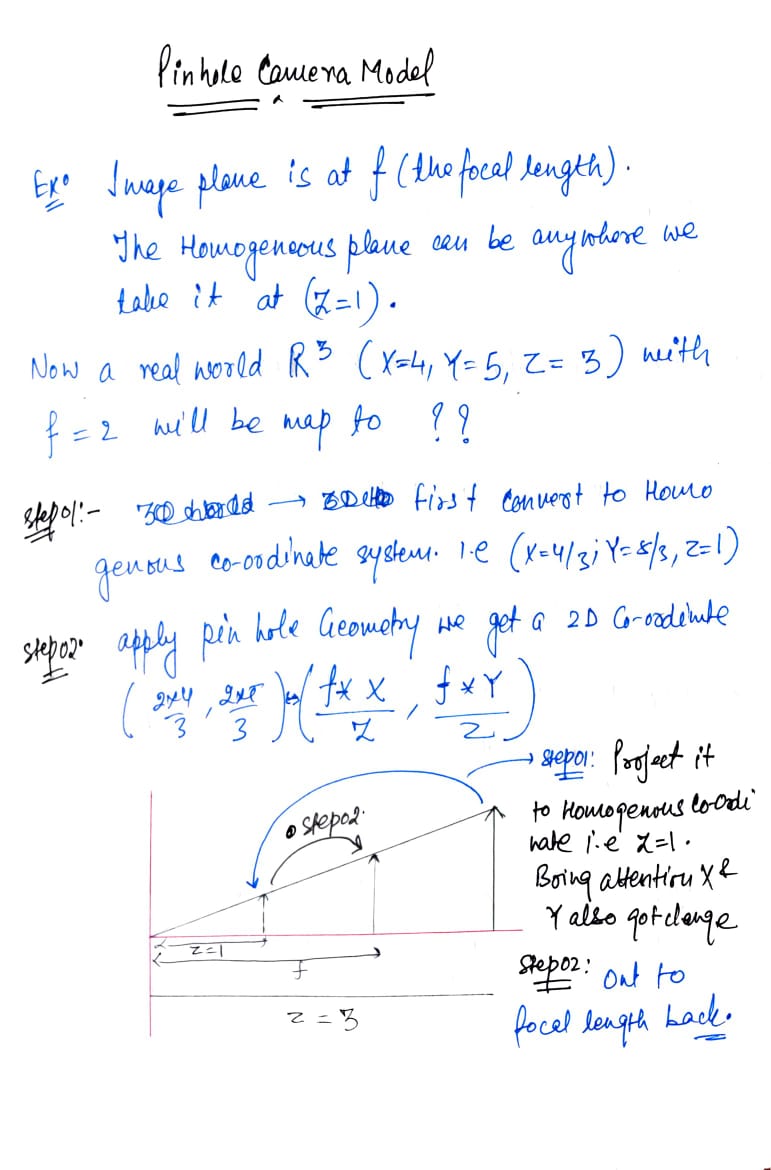 Pinhole Camera Model
Ex: Image plane is at f (the focal length).
The Homogeneous plane can be anywhere we
take it at (Z=1).
Now a real world R³ (X=4, Y=5, Z=3) with
f = 2 will be map to ??
Step01:- → first convert to Homo
genous co-ordinate system. i.e (X=4/3; Y=5/3, Z=1)
Step02: apply pin hole Geometry we get a 2D Co-ordinate
( 2×4/3 , 2×5/3 ) ⇔ ( f * X / Z , f * Y / Z )
→ Step01: Project it
to Homogenous Co-Ordi
nate i.e Z=1.
Boing attention X &
Y also got change
Step02: Ont to
focel length back.
Step02:
Z=1
f
Z = 3